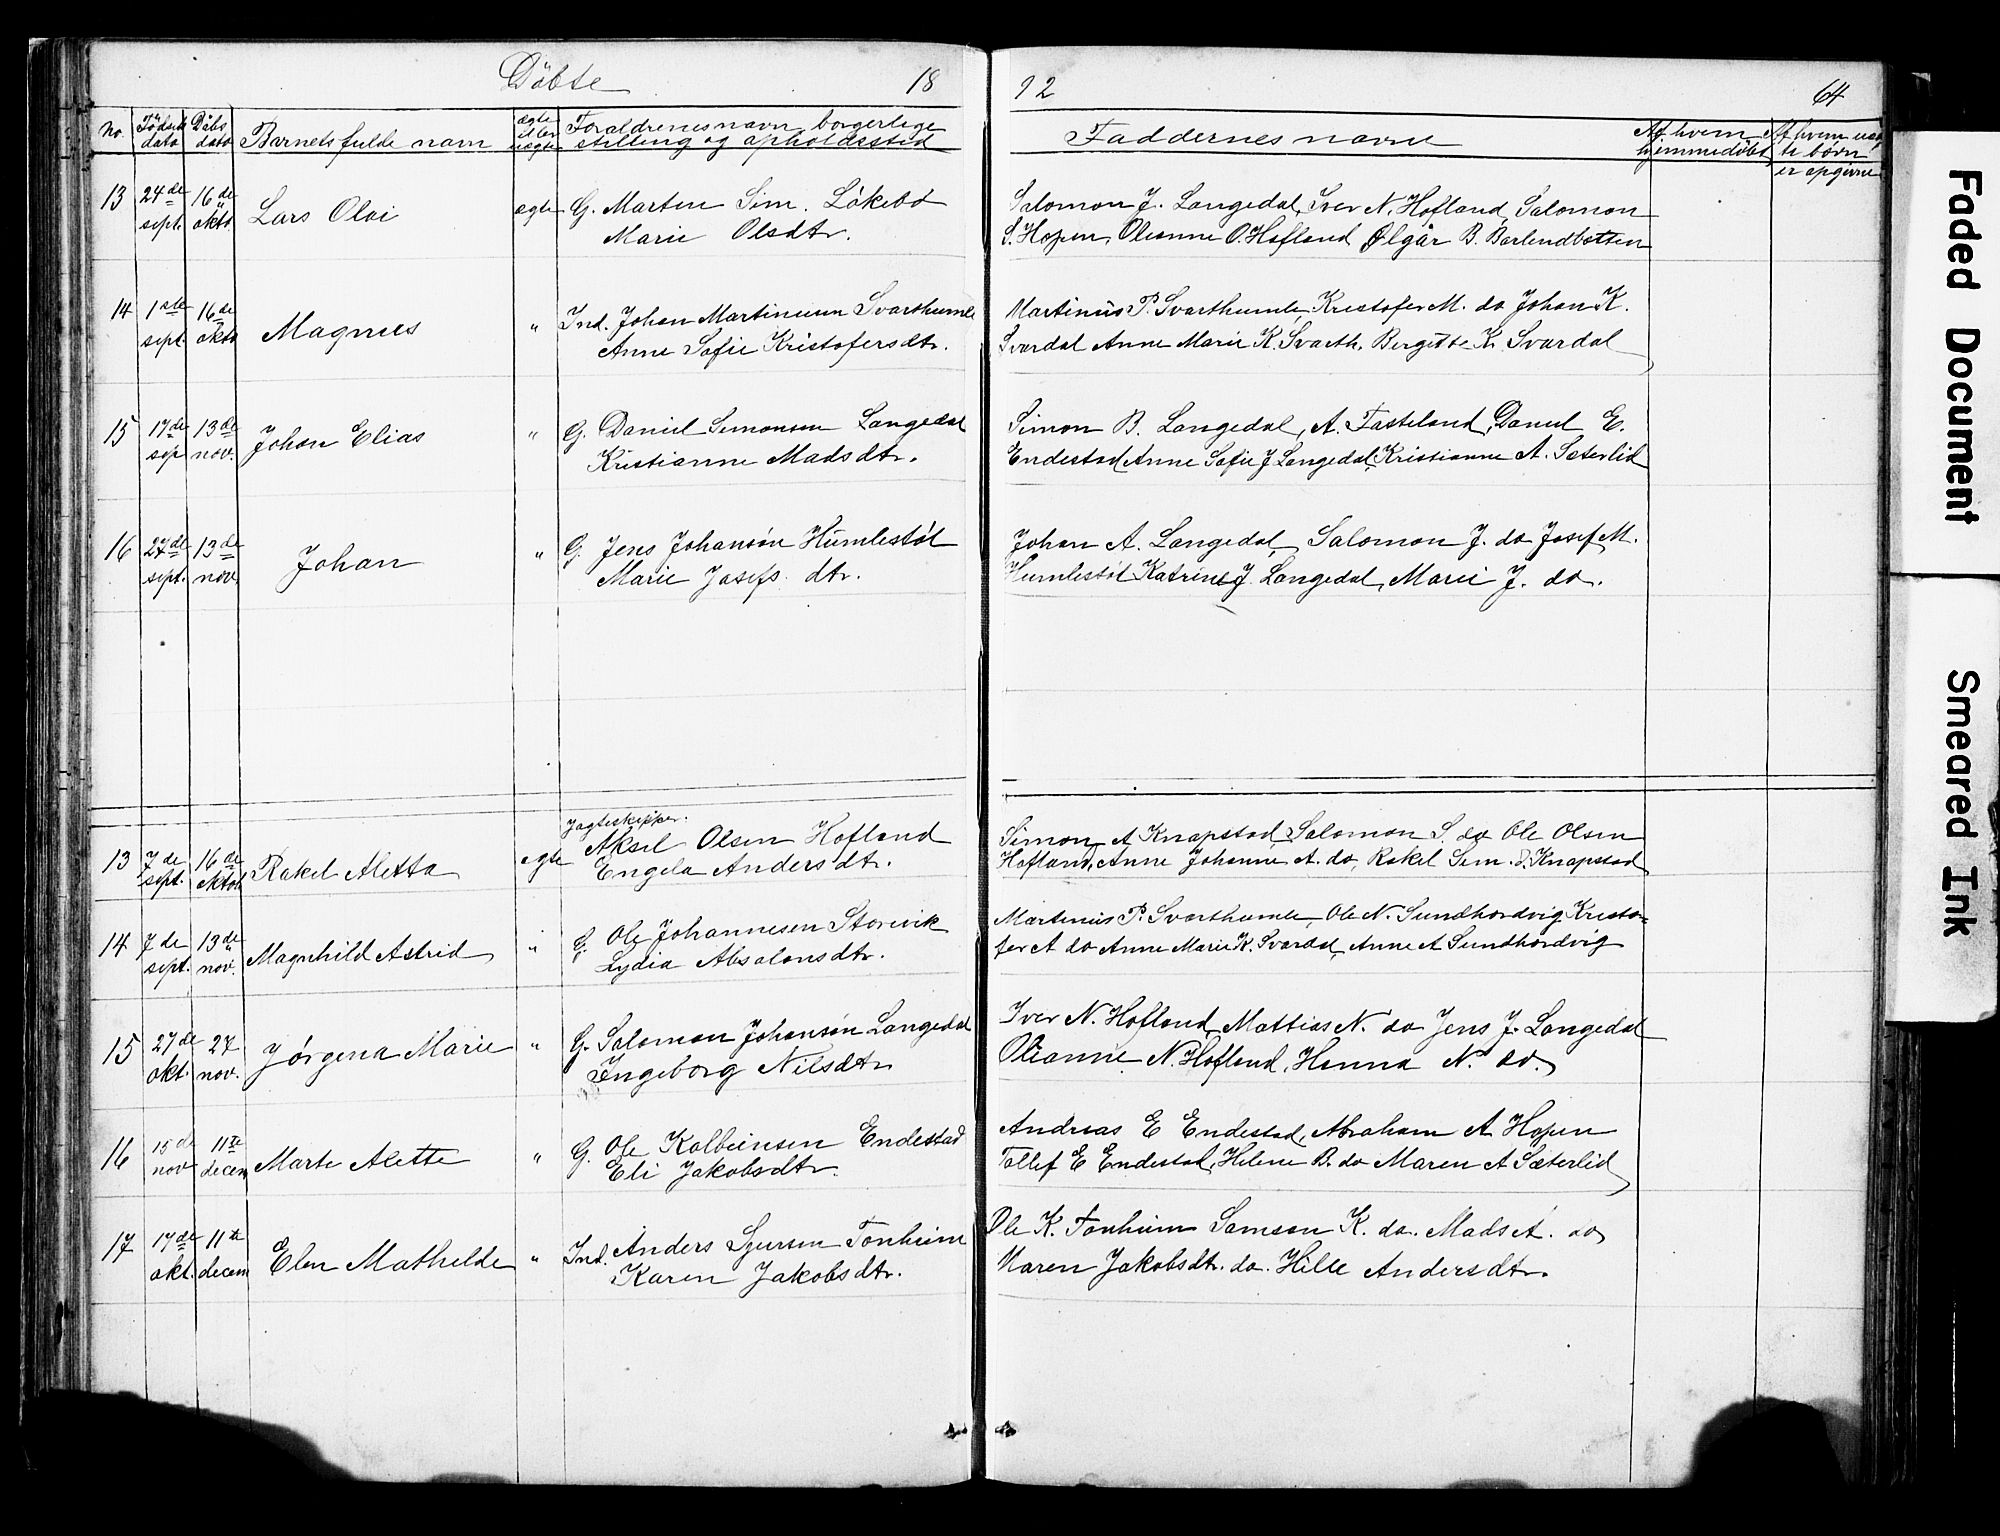 Döbte 18
92 64
No. Födsels dato Döbs dato Barnets fulde navn ægte eller uægte Forældrenes navn, borgerlige stilling og opholdssted
Faddernes navne Af hvem hjemmedöbt Af hvem uægte börn er opgivne
13 24de sept. 16de okto. Lars Olai ægte G. Marten Sim. Lökebö
Marie Olsdtr.
Salomon J. Langedal, Iver N. Hofland, Salomon
S. Hopen, Olianne O. Hofland Ølgår B. Barlendbotten
14 1ste sept. 16de okto Magnus " Ind. Johan Martinusen Svarthumle
Anne Sofie Kristofersdtr.
Martinus P. Svarthumle, Kristofer M. do Johan K.
Svardal Anne Marie K. Svarth. Bergitte K. Svardal
15 17de sep 13de nov. Johan Elias " G. Daniel Simonsen Langedal
Kristianne Madsdtr.
Simon B. Langedal, A. Fasteland, Daniel E.
Endestad Anne Sofie J Langedal, Kristianne A. Sæterlid
16 27de sept. 13de nov. Johan " G. Jens Johansön Humlestöl
Marie Josefs. dtr.
Johan A. Langedal, Salomon J. do Josef M.
Humlestöl Katrine J. Langedal, Marie J. do.
Jagteskipper.
13 7de sept. 16de oktob Rakel Aletta egte Aksel Olsen Hofland
Engela Andersdtr.
Simon A Knapstad, Salomon S. do Ole Olsen
Hofland, Anne Johanne A. do, Rakel Sim. d. Knapstad
14 7de sept. 13de nov. Magnhild Astrid " G. Ole Johannesen Storevik
Lydia Absalonsdtr.
Martinus P. Svarthumle, Ole N. Sundhordvig Kristo-
fer A do Anne Marie K. Svardal, Anne A Sundhordvig
15 27de okt. 27 nov. Jörgena Marie " G. Salomon Johansön Langedal
Ingeborg Nilsdtr
Iver N. Hofland, Mattias N. do Jens J. Langedal
Olianne N. Hofland, Hanna N. do.
16 15de nov 11te decem Marte Alette " G. Ole Kolbeinsen Endestad
Eli Jakobsdtr.
Andreas E Endestad, Abraham A Hopen
Tollef E Endestad, Helene B. do Maren A Sæterlid
17 17de okt. 11te decem Elen Mathilde " Ind. Anders Sjursen Tonheim
Karen Jakobsdtr.
Ole K. Tonheim Samson K. do. Mads A. do
Maren Jakobsdtr. do. Hille Andersdtr.
Faded Document
Smeared Ink